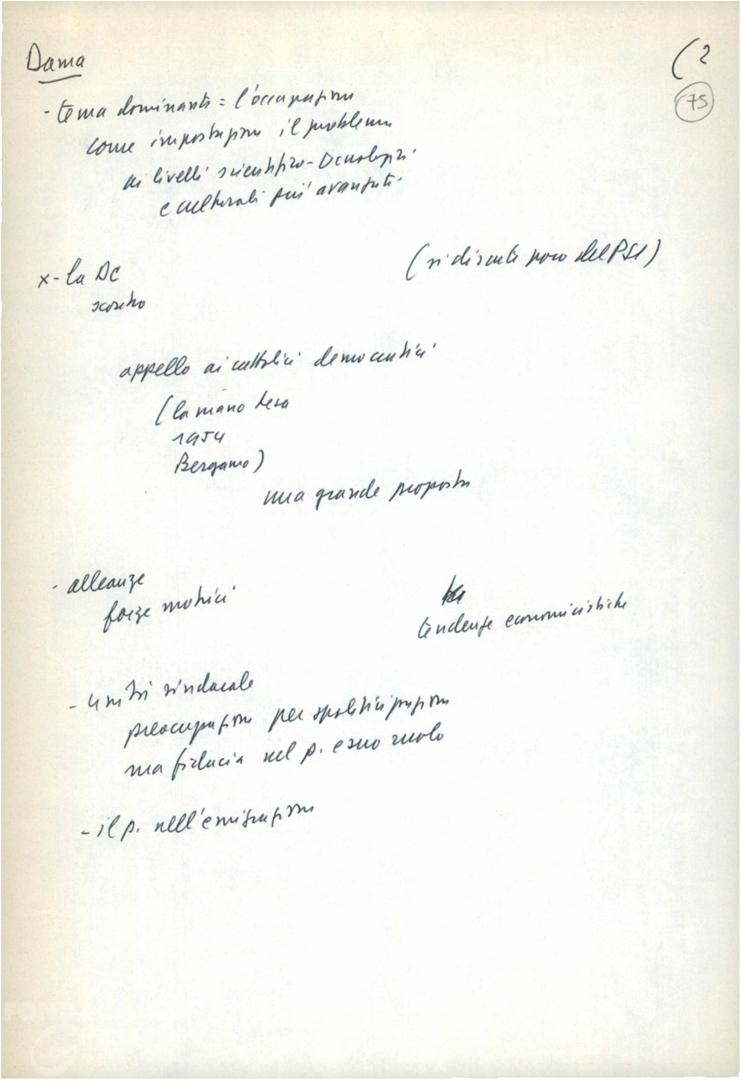 Dama
(2
75
- tema dominante = l'occupazione
come impostazione il problema
ai livelli scientifico-tecnologici
e culturali più avanzati.
x- la DC
(si discute poco del PSI)
appello ai cattolici democratici
(la mano tesa
1954
Bergamo)
una grande proposta
- alleanze
forze motrici
tendenze economicistiche
- unità sindacale
preoccupazione per spoliticizzazione
ma fiducia nel p. e suo ruolo
- il p. nell'emigrazione